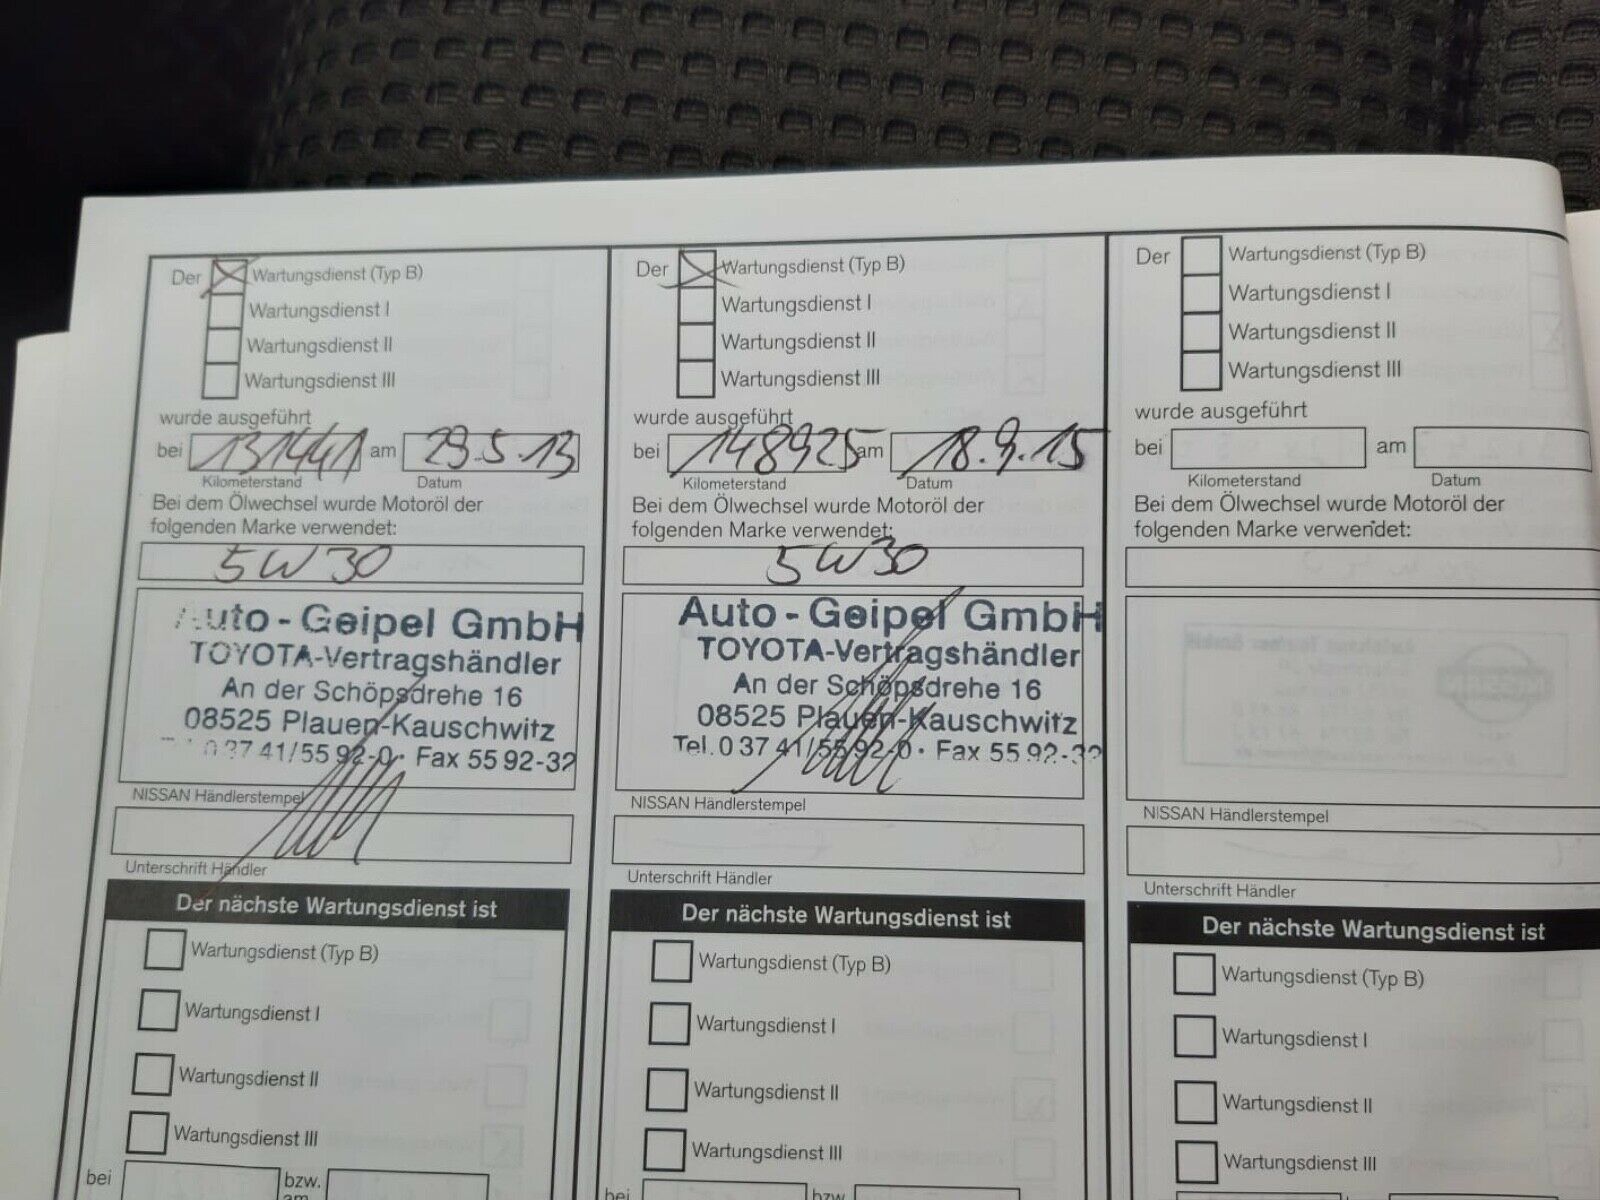 Der Wartungsdienst (Typ B)
Wartungsdienst I
Wartungsdienst II
Wartungsdienst III
wurde ausgeführt
bei 131441 am 29.5.13
Kilometerstand Datum
Bei dem Ölwechsel wurde Motoröl der
folgenden Marke verwendet:
5W30
Auto - Geipel GmbH
TOYOTA-Vertragshändler
An der Schöpsdrehe 16
08525 Plauen-Kauschwitz
0 37 41/55 92-0 · Fax 55 92-32
NISSAN Händlerstempel
Unterschrift Händler
Der nächste Wartungsdienst ist
Wartungsdienst (Typ B)
Wartungsdienst I
Wartungsdienst II
Wartungsdienst III
bei bzw.
am
Der Wartungsdienst (Typ B)
Wartungsdienst I
Wartungsdienst II
Wartungsdienst III
wurde ausgeführt
bei 148925 am 18.9.15
Kilometerstand Datum
Bei dem Ölwechsel wurde Motoröl der
folgenden Marke verwendet:
5W30
Auto - Geipel GmbH
TOYOTA-Vertragshändler
An der Schöpsdrehe 16
08525 Plauen-Kauschwitz
Tel. 0 37 41/55 92-0 · Fax 55 92-32
NISSAN Händlerstempel
Unterschrift Händler
Der nächste Wartungsdienst ist
Wartungsdienst (Typ B)
Wartungsdienst I
Wartungsdienst II
Wartungsdienst III
bei bzw.
Der Wartungsdienst (Typ B)
Wartungsdienst I
Wartungsdienst II
Wartungsdienst III
wurde ausgeführt
bei am
Kilometerstand Datum
Bei dem Ölwechsel wurde Motoröl der
folgenden Marke verwendet:
NISSAN Händlerstempel
Unterschrift Händler
Der nächste Wartungsdienst ist
Wartungsdienst (Typ B)
Wartungsdienst I
Wartungsdienst II
Wartungsdienst III